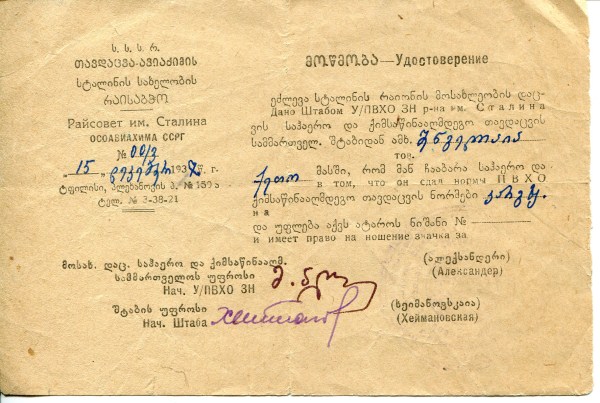 ს. ს. ს. რ.
თავდაცვა-ავიაქიმის
სტალინის სახელობის
რაისაბჭო
Райсовет им. Сталина
ОСОАВИАХИМА ССРГ
№ 00/3
„ 15 „ დეკემბერი 1937 წ. г.
ტფილისი, პლეხანოვის პ. № 159ა
ტელ. № 3-38-21
მოწმობა—Удостоверение
ეძლევა სტალინის რაიონის მოსახლეობის დაც-
Дано Штабом У/ПВХО ЗН р-на им. Сталина
ვის საჰაერო და ქიმსაწინააღმდეგო თავდაცვის
სამმართველ. შტაბიდან ამხ.
тов.
ქეთო მასში, რომ მან ჩააბარა საჰაერო და
в том, что он сдал нормы ПВХО
ქიმსაწინააღმდეგო თავდაცვის ნორმები
на
და უფლება აქვს ატაროს ნიშანი №
и имеет право на ношение значка за
მოსახ. დაც. საჰაერო და ქიმსაწინააღმ.
სამმართველოს უფროსი
Нач. У/ПВХО ЗН
(ალექსანდერი)
(Александер)
შტაბის უფროსი
Нач. Штаба
(ხეიმანოვსკაია)
(Хеймановская)